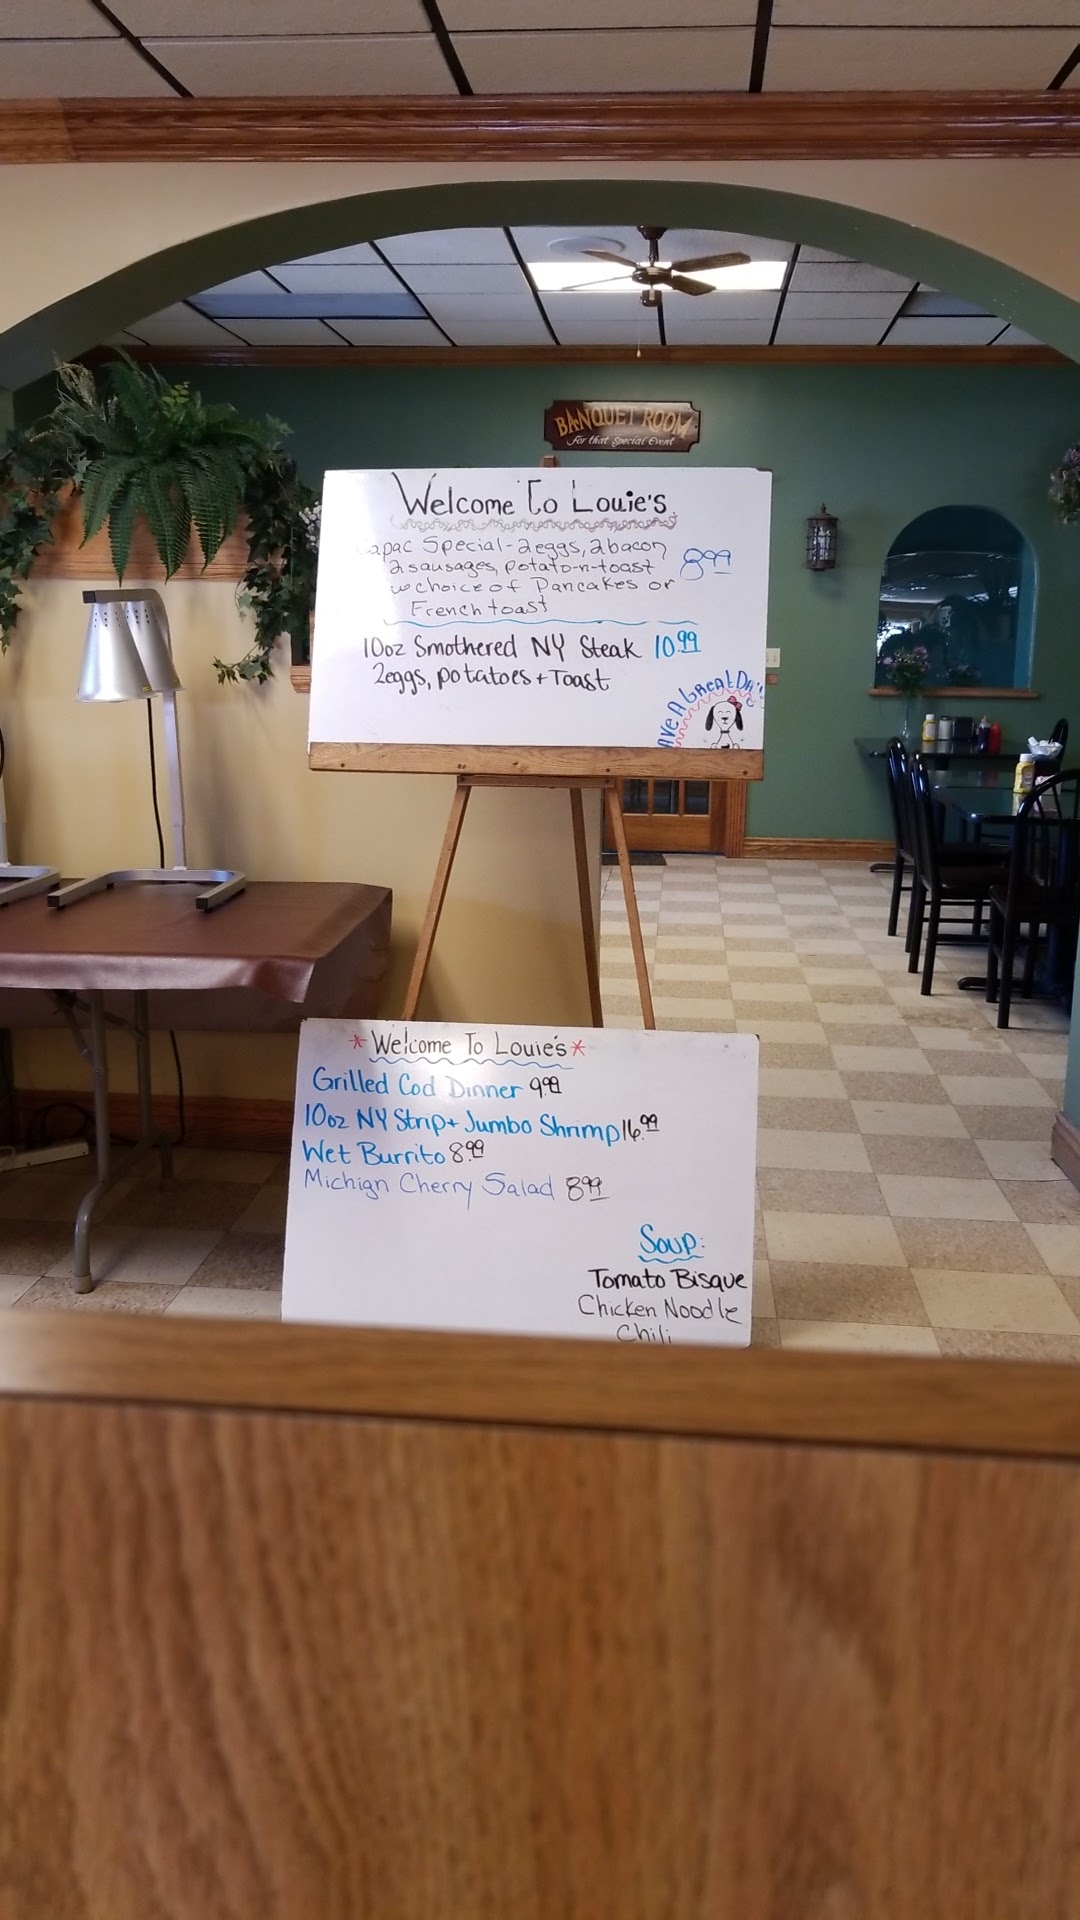 BANQUET ROOM
for that Special Event
Welcome To Louie's
Capac Special - 2eggs, 2bacon
2 sausages, potato-n-toast
8.99
w choice of Pancakes or
French toast
10oz Smothered NY Steak 10.99
2eggs, potatoes + Toast
Have A Great Day
*Welcome To Louie's*
Grilled Cod Dinner 9.99
10oz NY Strip + Jumbo Shrimp 16.99
Wet Burrito 8.99
Michign Cherry Salad 8.99
Soup:
Tomato Bisque
Chicken Noodle
Chili